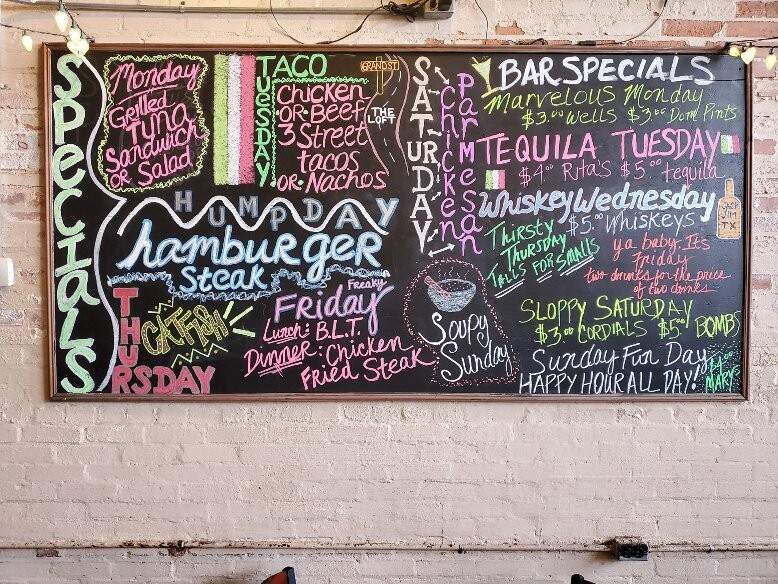 SPECIALS
Monday
Grilled
Tuna
Sandwich
or Salad
TACO
TUESDAY
Chicken
OR Beef
3 Street
tacos
OR Nachos
GRAND ST.
THE
HUMPDAY
hamburger
Steak
THURSDAY
CATFISH
Freaky
Friday
Lunch: B.L.T.
Dinner: Chicken
Fried Steak
SATURDAY
Chicken
Parmesan
Soupy
Sunday
BAR SPECIALS
Marvelous Monday
$3.00 Wells $3.00 Dom Pints
TEQUILA TUESDAY
$4.00 Rita's $5.00 tequila
Whiskey Wednesday
$5.00 Whiskeys
JACK
JIM
TX
Thirsty
Thursday
Talls for Smalls
ya baby. Its
Friday
two drinks for the price
of two drinks
SLOPPY SATURDAY
$3.00 CORDIALS $5.00 BOMBS
Sunday Fun Day
HAPPY HOUR ALL DAY!
MARY